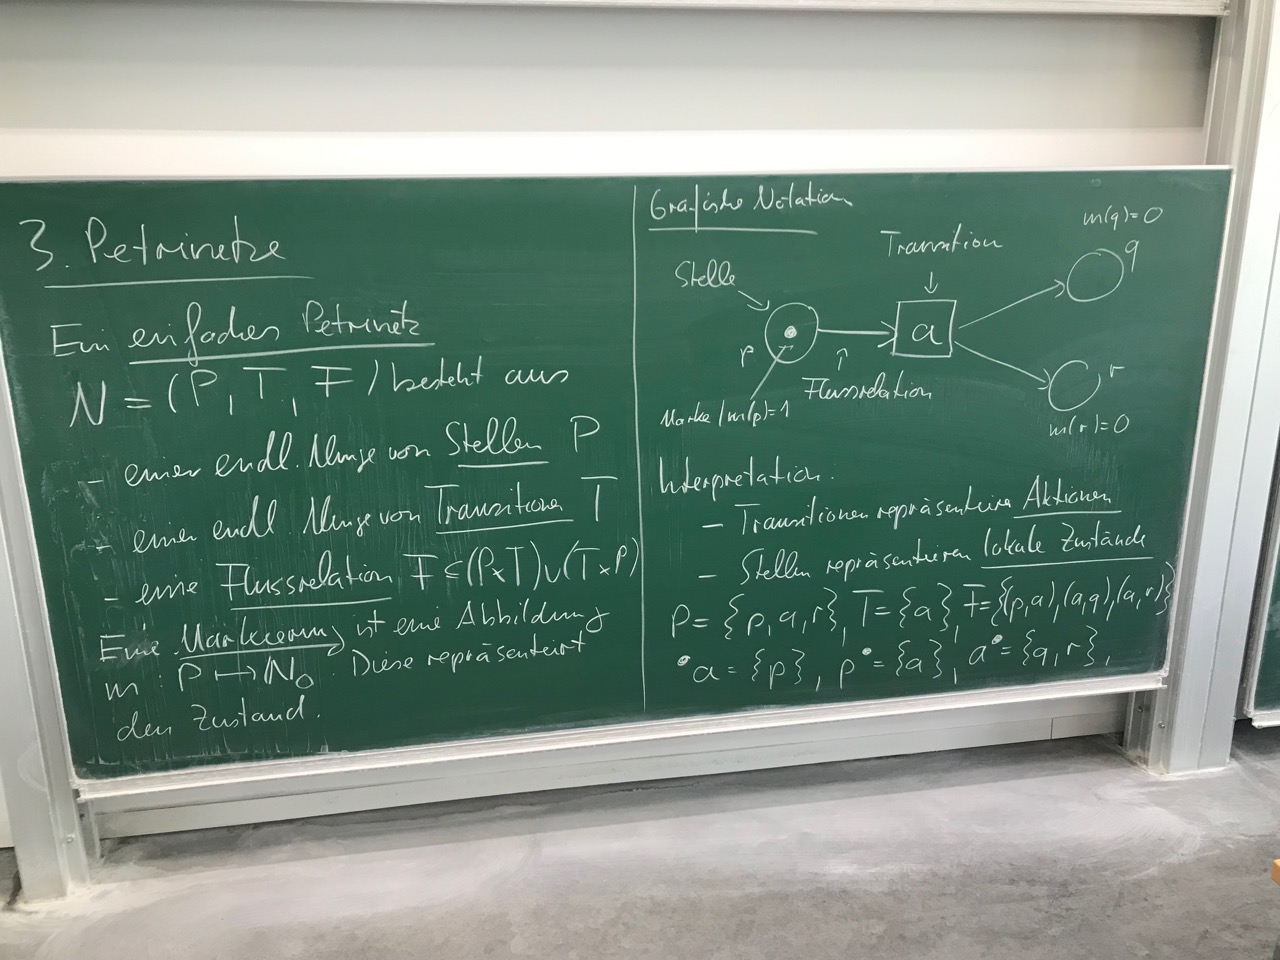 3. Petrinetze
Ein einfaches Petrinetz
N = (P, T, F) besteht aus
- einer endl. Menge von Stellen P
- einer endl. Menge von Transitionen T
- eine Flussrelation F ⊆ (P×T)∪(T×P)
Eine Markierung ist eine Abbildung
m : P ↦ N₀. Diese repräsentiert
den Zustand.
Grafische Notation
m(q)=0
q
Transition
Stelle
a
p
r
Flussrelation
Marke / m(p)=1
m(r)=0
Interpretation:
- Transitionen repräsentieren Aktionen
- Stellen repräsentieren lokale Zustände
P = {p, q, r}, T = {a}, F = {(p,a), (a,q), (a,r)}
•a = {p}, p• = {a}, a• = {q, r},